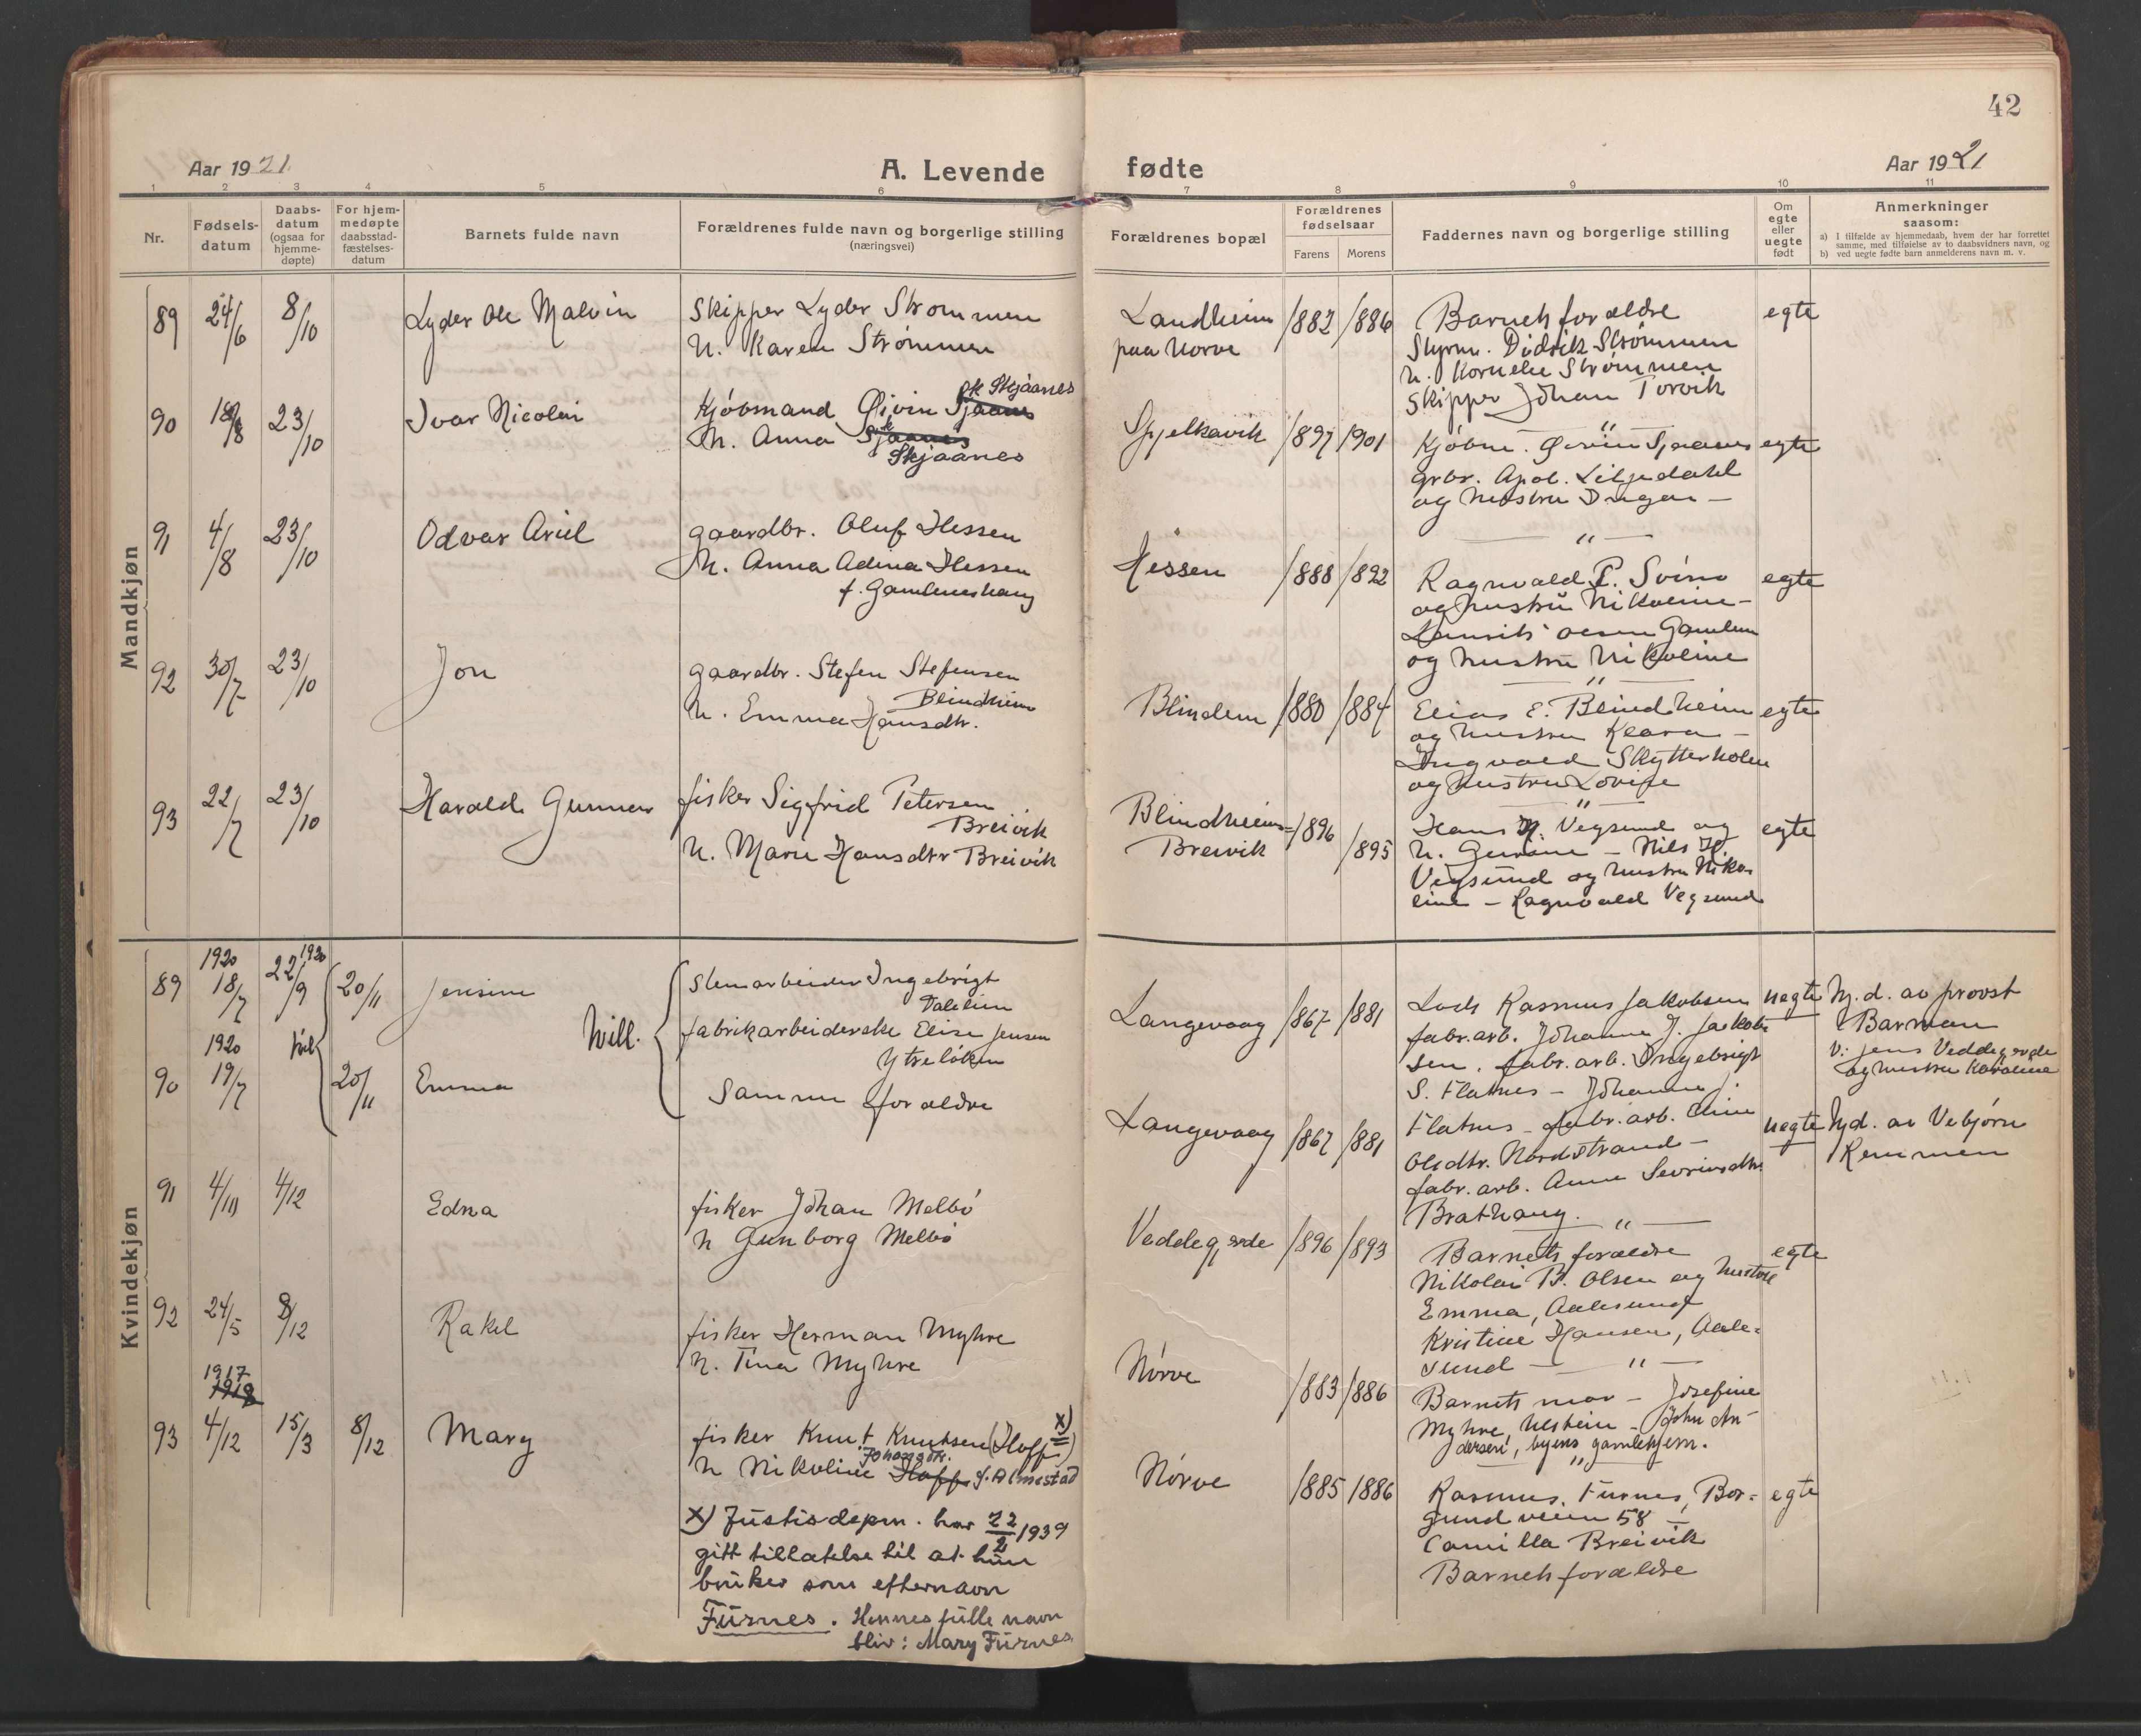 42
Aar 1921.
A. Levende
fødte
Aar 1921
1 2 3 4 5 6 7 8 9 10 11
Nr.
Fødsels-
datum
Daabs-
datum
(ogsaa for
hjemme-
døpte)
For hjem-
medøpte
daabsstad-
fæstelses-
datum
Barnets fulde navn
Forældrenes fulde navn og borgerlige stilling
(næringsvei)
Forældrenes bopæl
Forældrenes
fødselsaar
Farens Morens
Faddernes navn og borgerlige stilling
Om
egte
eller
uegte
født
Anmerkninger
saasom:
a) I tilfælde av hjemmedaab, hvem der har forrettet
samme, med tilføielse av to daabsvidners navn, og
b) ved uegte fødte barn anmelderens navn m. v.
Mandkjøn
89 24/6 8/10 Lyder Ole Malvin
Skipper Lyder Strømmen
h. Karen Strømmen
Landheim
paa Nørve
1882 1886
Barnets forældre
Styrm. Didrik Strømmen
h. Kornelie Strømmen
Skipper Johan Torvik
egte
90 18/8 23/10 Ivar Nicolai
Kjøbmand Øivin Sjaanes
sk Skjaanes
h. Anna Sjaanes
Skjaanes
Spjelkavik
1897 1901
Kjøbm. Øivin Sjaanes
grbr. Apol. Liljedahl
og hustru Dagn —
egte
91 4/8 23/10 Odvar Ariel
gaardbr. Oluf Hessen
h. Anna Adina Hessen
f. Gamlemshaug
Hessen
1888 1892
Ragnvald P. Svino
og hustru Nikoline —
Laurits Gamlem
og hustru Nikoline
egte
92 30/7 23/10 Jon
gaardbr. Stefen Stefensen
Blindheim
h. Emma Hansdtr.
Blindem
1880 1884
Elias E. Blindheim
og hustru Klara —
Ingvald Skytterholm
og hustru Lovise
egte
93 22/7 23/10 Harald Gunnar
fisker Sigfrid Petersen
Breivik
h. Marie Hansdtr Breivik
Blindheims=
Breivik
1896
1895
Hans H. Vegsund og
h. — Nils H.
Vegsund og hustru Niko-
line — Ragnvald Vegsund
egte
Kvindekjøn
89 1920 18/7 1920 22/9 20/11 Jensine
Tvil.
Stenarbeider Ingebrigt
Dalelien
fabrikarbeiderske Elise Jensen
Ytreløken
Langevaag
1867 1881
Lods Rasmus Jakobsen
fabr.arb. Johanne J. Jakob-
sen. fabr.arb. Ingebrigt
S. Flatnes — Johanne J.
Flatnes — fabr.arb. Oline
Olsdtr. Nordstrand —
fabr. arb. Anne Sevrinsdtr.
Brathaug.
uegte
Hj.d. av provst
Barman
v: Jens Veddegjerde
og hustru Karoline
90 1920 19/7 20/11 Emma
Samme forældre
Langevaag
1867 1881
uegte
Hjd. av Vebjørn
Remmen
91 4/10 4/12 Edna
fisker Johan Melbø
h Gunborg Melbø
Veddegjerde
1896 1893
Barnets forældre
Nikolai B. Olsen og hustru
Emma, Aalesund
Kristine Hansen, Aale-
sund —
egte
92 24/5 8/12 Rakel
fisker Herman Myhre
h. Tina Myhre
Nørve
1883 1886
Barnets mor — Josefine
Myhre, Ulstein — John An-
dersen, byens gamlehjem.
93 1917 1918 4/12 15/3 8/12 Mary
fisker Knut Knutsen (Hoff) x)
h Nikoline Johansdtr. Hoff f. Almestad
Nørve
1885 1886
Rasmus Furnes, Bor-
gundveien 58 —
Camilla Breivik
Barnets forældre
egte
x) Justisdepm. har 22/2 1939
gitt tillatelse til at hun
bruker som efternavn
Furnes. Hennes fulle navn
bliv: Mary Furnes.